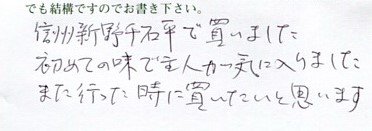 でも結構ですのでお書き下さい。
信州新野千石平で買いました
初めての味で主人が気に入りました
また行った時に買いたいと思います